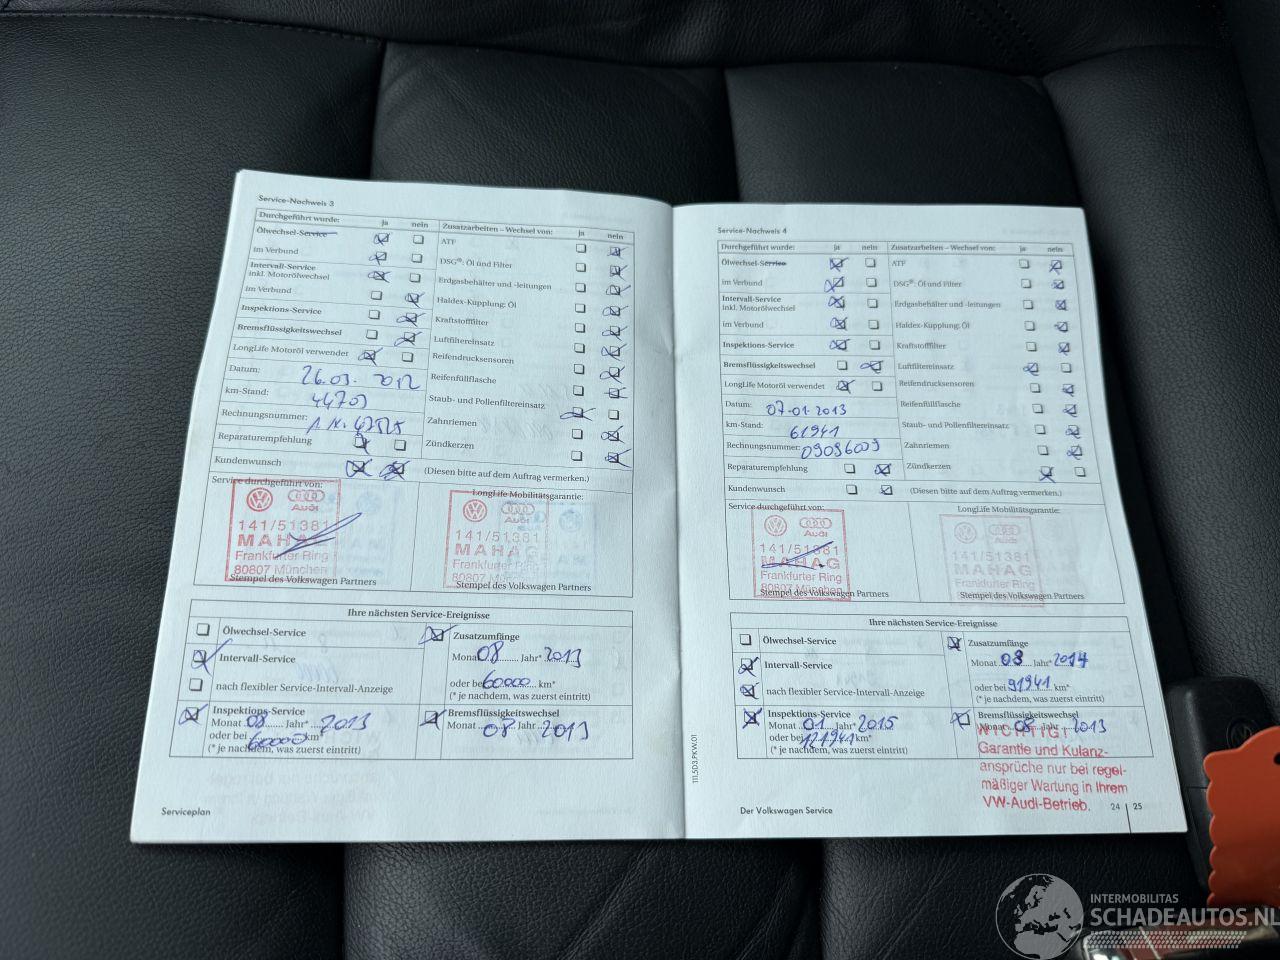 Service-Nachweis 3
Durchgeführt wurde: ja nein
Zusatzarbeiten – Wechsel von: ja nein
Ölwechsel-Service
im Verbund
Intervall-Service
inkl. Motorölwechsel
im Verbund
Inspektions-Service
Bremsflüssigkeitswechsel
LongLife Motoröl verwendet
Datum: 26.03. 2012
km-Stand: 44709
Rechnungsnummer:
Reparaturempfehlung
Kundenwunsch
ATF
DSG®: Öl und Filter
Erdgasbehälter und -leitungen
Haldex-Kupplung: Öl
Kraftstofffilter
Luftfiltereinsatz
Reifendrucksensoren
Reifenfüllflasche
Staub- und Pollenfiltereinsatz
Zahnriemen
Zündkerzen
(Diesen bitte auf dem Auftrag vermerken.)
Service durchgeführt von:
LongLife Mobilitätsgarantie:
Audi
141/51381
MAHAG
Frankfurter Ring
80807 München
Stempel des Volkswagen Partners
Audi
141/51381
MAHAG
Frankfurter Ring
80807 München
Stempel des Volkswagen Partners
Ihre nächsten Service-Ereignisse
Ölwechsel-Service
Intervall-Service
nach flexibler Service-Intervall-Anzeige
Zusatzumfänge
Monat 08 Jahr* 2013
oder bei 60000 km*
(* je nachdem, was zuerst eintritt)
Inspektions-Service
Monat 08 Jahr* 2013
oder bei 60000 km*
(* je nachdem, was zuerst eintritt)
Bremsflüssigkeitswechsel
Monat 08 Jahr 2013
Serviceplan
Service-Nachweis 4
Durchgeführt wurde: ja nein
Zusatzarbeiten – Wechsel von: ja nein
Ölwechsel-Service
im Verbund
Intervall-Service
inkl. Motorölwechsel
im Verbund
Inspektions-Service
Bremsflüssigkeitswechsel
LongLife Motoröl verwendet
Datum: 07.01.2013
km-Stand: 61941
Rechnungsnummer: 09096009
Reparaturempfehlung
Kundenwunsch
ATF
DSG®: Öl und Filter
Erdgasbehälter und -leitungen
Haldex-Kupplung: Öl
Kraftstofffilter
Luftfiltereinsatz
Reifendrucksensoren
Reifenfüllflasche
Staub- und Pollenfiltereinsatz
Zahnriemen
Zündkerzen
(Diesen bitte auf dem Auftrag vermerken.)
Service durchgeführt von:
LongLife Mobilitätsgarantie:
Audi
141/51381
MAHAG
Frankfurter Ring
80807 München
Stempel des Volkswagen Partners
Audi
141/51381
MAHAG
Frankfurter Ring
Stempel des Volkswagen Partners
Ihre nächsten Service-Ereignisse
Ölwechsel-Service
Intervall-Service
nach flexibler Service-Intervall-Anzeige
Zusatzumfänge
Monat 08 Jahr* 2014
oder bei 91941 km*
(* je nachdem, was zuerst eintritt)
Inspektions-Service
Monat 01 Jahr* 2015
oder bei 121941 km*
(* je nachdem, was zuerst eintritt)
Bremsflüssigkeitswechsel
Monat 08 Jahr 2013
WICHTIG!
Garantie und Kulanz-
ansprüche nur bei regel-
mäßiger Wartung in Ihrem
VW-Audi-Betrieb.
111.5D3.PKW.01
Der Volkswagen Service
24 | 25
INTERMOBILITAS
SCHADEAUTOS.NL